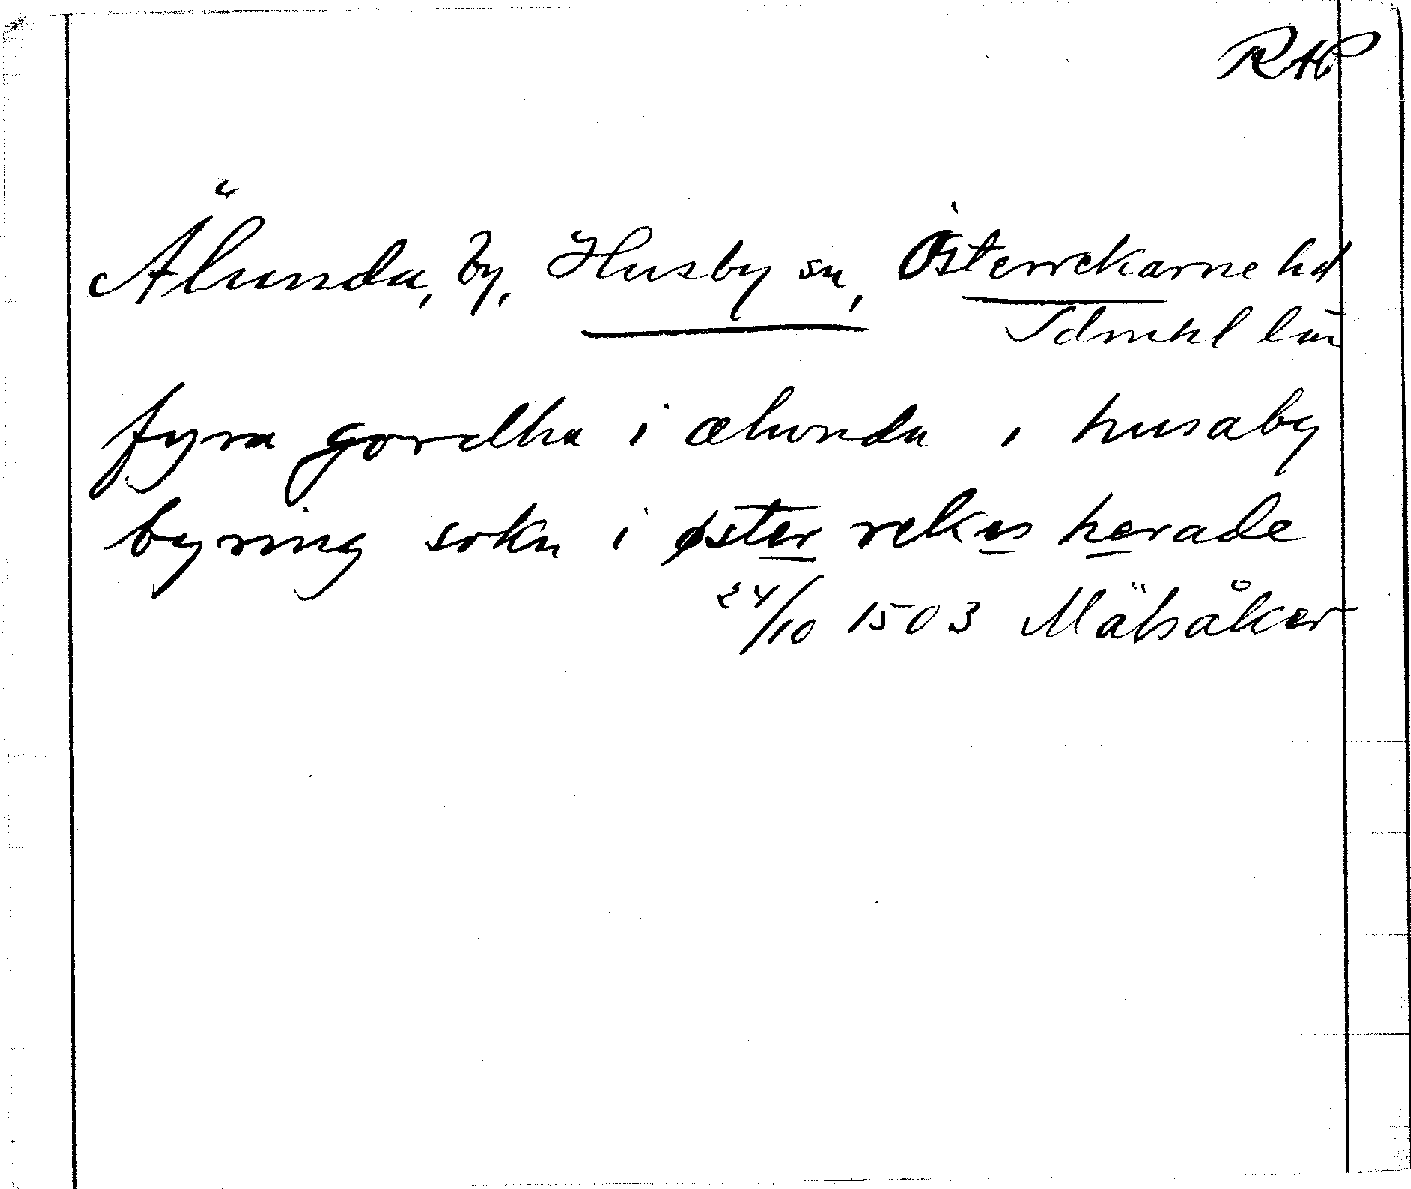 RAP
Älunda, by, Husby sn, Österrekarne hd
Sdmnl län
fyra gordha i ælunda i husaby
byring sokn i øster rekes herade
24/10 1503 Mälsåker